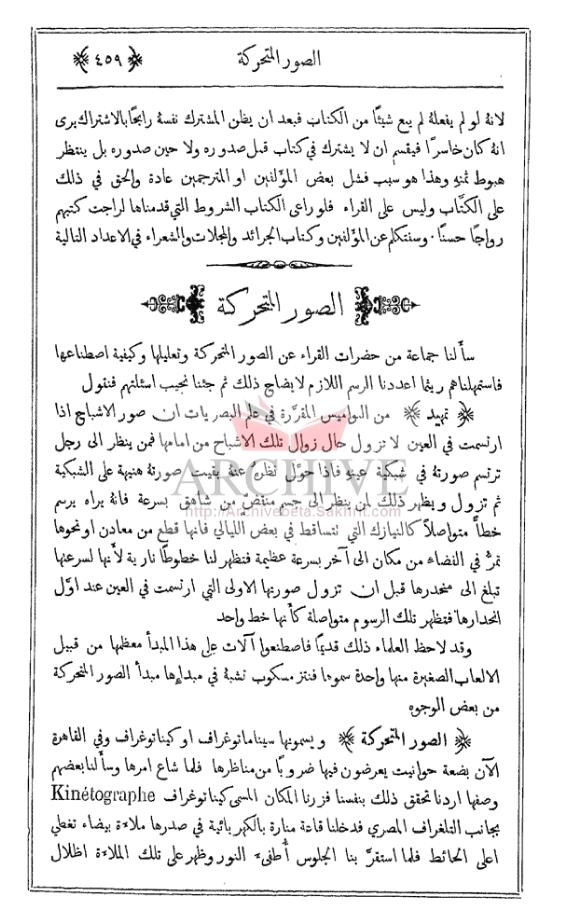 الصور المتحركة ﴿٤٥٩﴾
لانهُ لو لم يفعلهُ لم يبع شيئًا من الكتاب فبعد ان يظن المشترك نفسهُ رابحًا بالاشتراك يرى
انهُ كان خاسرًا فيقسم ان لا يشترك في كتاب قبل صدوره ولا حين صدوره بل ينتظر
هبوط ثمنهِ وهذا هو سبب فشل بعض المؤلفين او المترجمين عادة والحق في ذلك
على الكتَّاب وليس على القراء فلو راعى الكتاب الشروط التي قدمناها لراجت كتبهم
رواجًا حسنًا . وسنتكلم عن المؤلفين وكتاب الجرائد والمجلات والشعراء في الاعداد التالية
الصور المتحركة
سألنا جماعة من حضرات القراء عن الصور المتحركة وتعليلها وكيفية اصطناعها
فاستمهلناهم ريثما اعددنا الرسم اللازم لايضاح ذلك ثم جئنا نجيب اسئلتهم فنقول
﴿ تمهيد ﴾ من النواميس المقرَّرة في علم البصريات ان صور الاشباح اذا
ارتسمت في العين لا تزول حال زوال تلك الاشباح من امامها فمن ينظر الى رجل
ترتسم صورتهُ في شبكية عينهِ فاذا حوَّل نظرهُ عنهُ بقيت صورتهُ هنيهة على الشبكية
ثم تزول ويظهر ذلك لمن ينظر الى جسم منقضٍّ من شاهق بسرعة فانهُ يراه يرسم
خطًّا متواصلاً كالنيازك التي تتساقط في بعض الليالي فانها قطع من معادن او نحوها
تمرُّ في الفضاء من مكان الى آخر بسرعة عظيمة فتظهر لنا خطوطًا نارية لأنها لسرعتها
تبلغ الى منحدرها قبل ان تزول صورتها الاولى التي ارتسمت في العين عند اوَّل
انحدارها فتظهر تلك الرسوم متواصلة كأنها خط واحد
وقد لاحظ العلماء ذلك قديمًا فاصطنعوا آلات على هذا المبدأ معظمها من قبيل
الالعاب الصغيرة منها واحدة سموها فنتزسكوب تشبهُ في مبدإها مبدأ الصور المتحركة
من بعض الوجوه
﴿ الصور المتحركة ﴾ ويسمونها سيناماتوغراف او كيناتوغراف وفي القاهرة
الآن بضعة حوانيت يعرضون فيها ضروبًا من مناظرها فلما شاع امرها وسألنا بعضهم
وصفها اردنا تحقق ذلك بنفسنا فزرنا المكان المسمى كيناتوغراف Kinétographe
بجانب التلغراف المصري فدخلنا قاعة منارة بالكهربائية في صدرها ملاءة بيضاء تغطي
اعلى الحائط فلما استقرَّ بنا الجلوس أُطفىء النور وظهر على تلك الملاءة اظلال
ARCHIVE
http://Archivebeta.Sakhrit.com